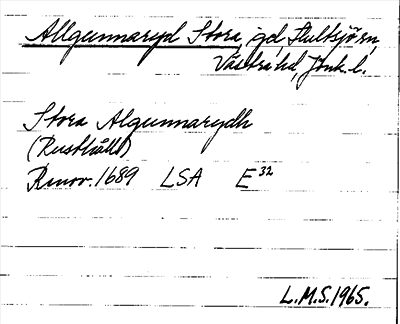 Allgunnaryd Stora, gd Hultsjö sn,
Västra hd, Jönk. l.
Stora Algunnarydh
(Rusthåll)
Rmov. 1689 LSA E 32
L.M.S. 1965.